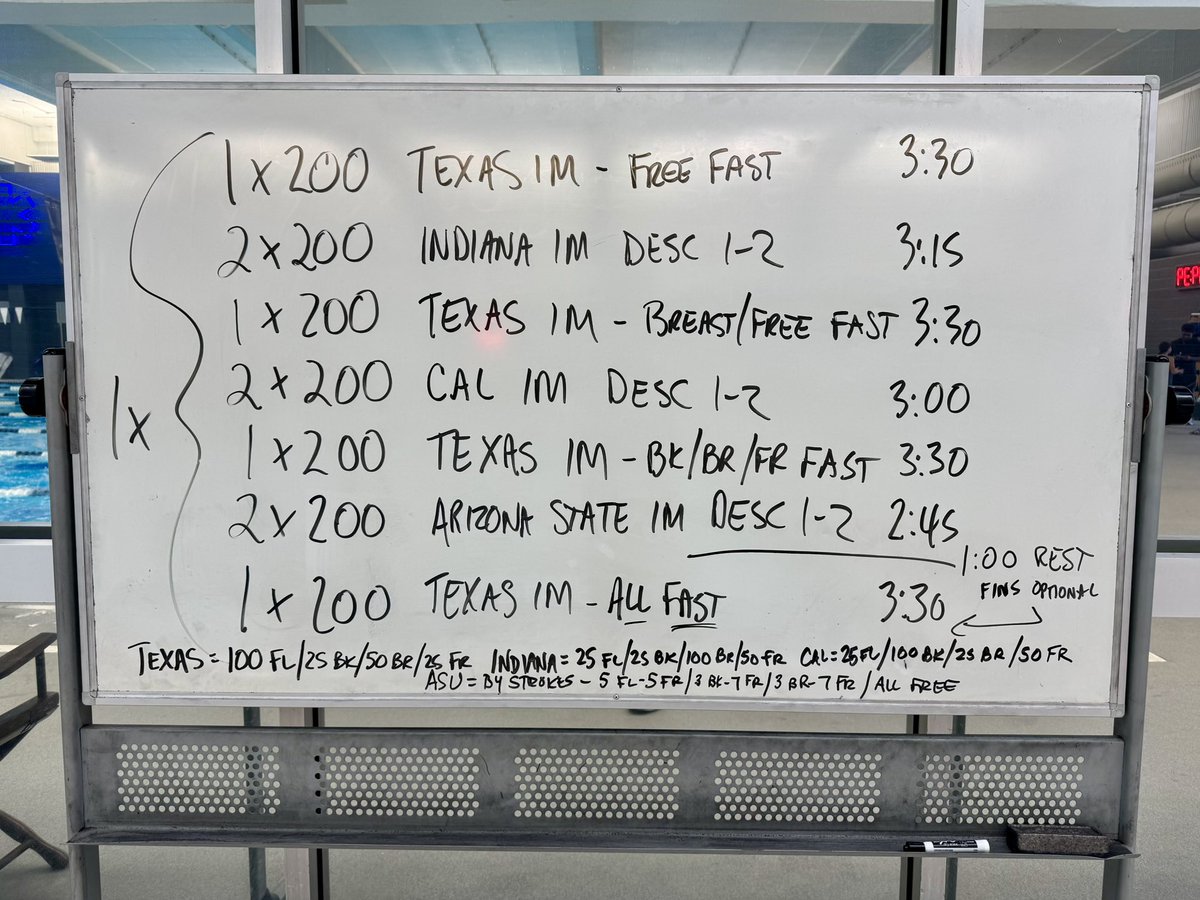 1x
1 x 200 TEXAS IM - FREE FAST 3:30
2 x 200 INDIANA IM DESC 1-2 3:15
1 x 200 TEXAS IM - BREAST/FREE FAST 3:30
2 x 200 CAL IM DESC 1-2 3:00
1 x 200 TEXAS IM - BK/BR/FR FAST 3:30
2 x 200 ARIZONA STATE IM DESC 1-2 2:45
1:00 REST
FINS OPTIONAL
1 x 200 TEXAS IM - ALL FAST 3:30
TEXAS = 100 FL/25 BK/50 BR/25 FR INDIANA = 25 FL/25 BK/100 BR/50 FR CAL = 25 FL/100 BK/25 BR/50 FR
ASU = BY STROKES - 5 FL-5 FR/3 BK-7 FR/3 BR-7 FR/ALL FREE